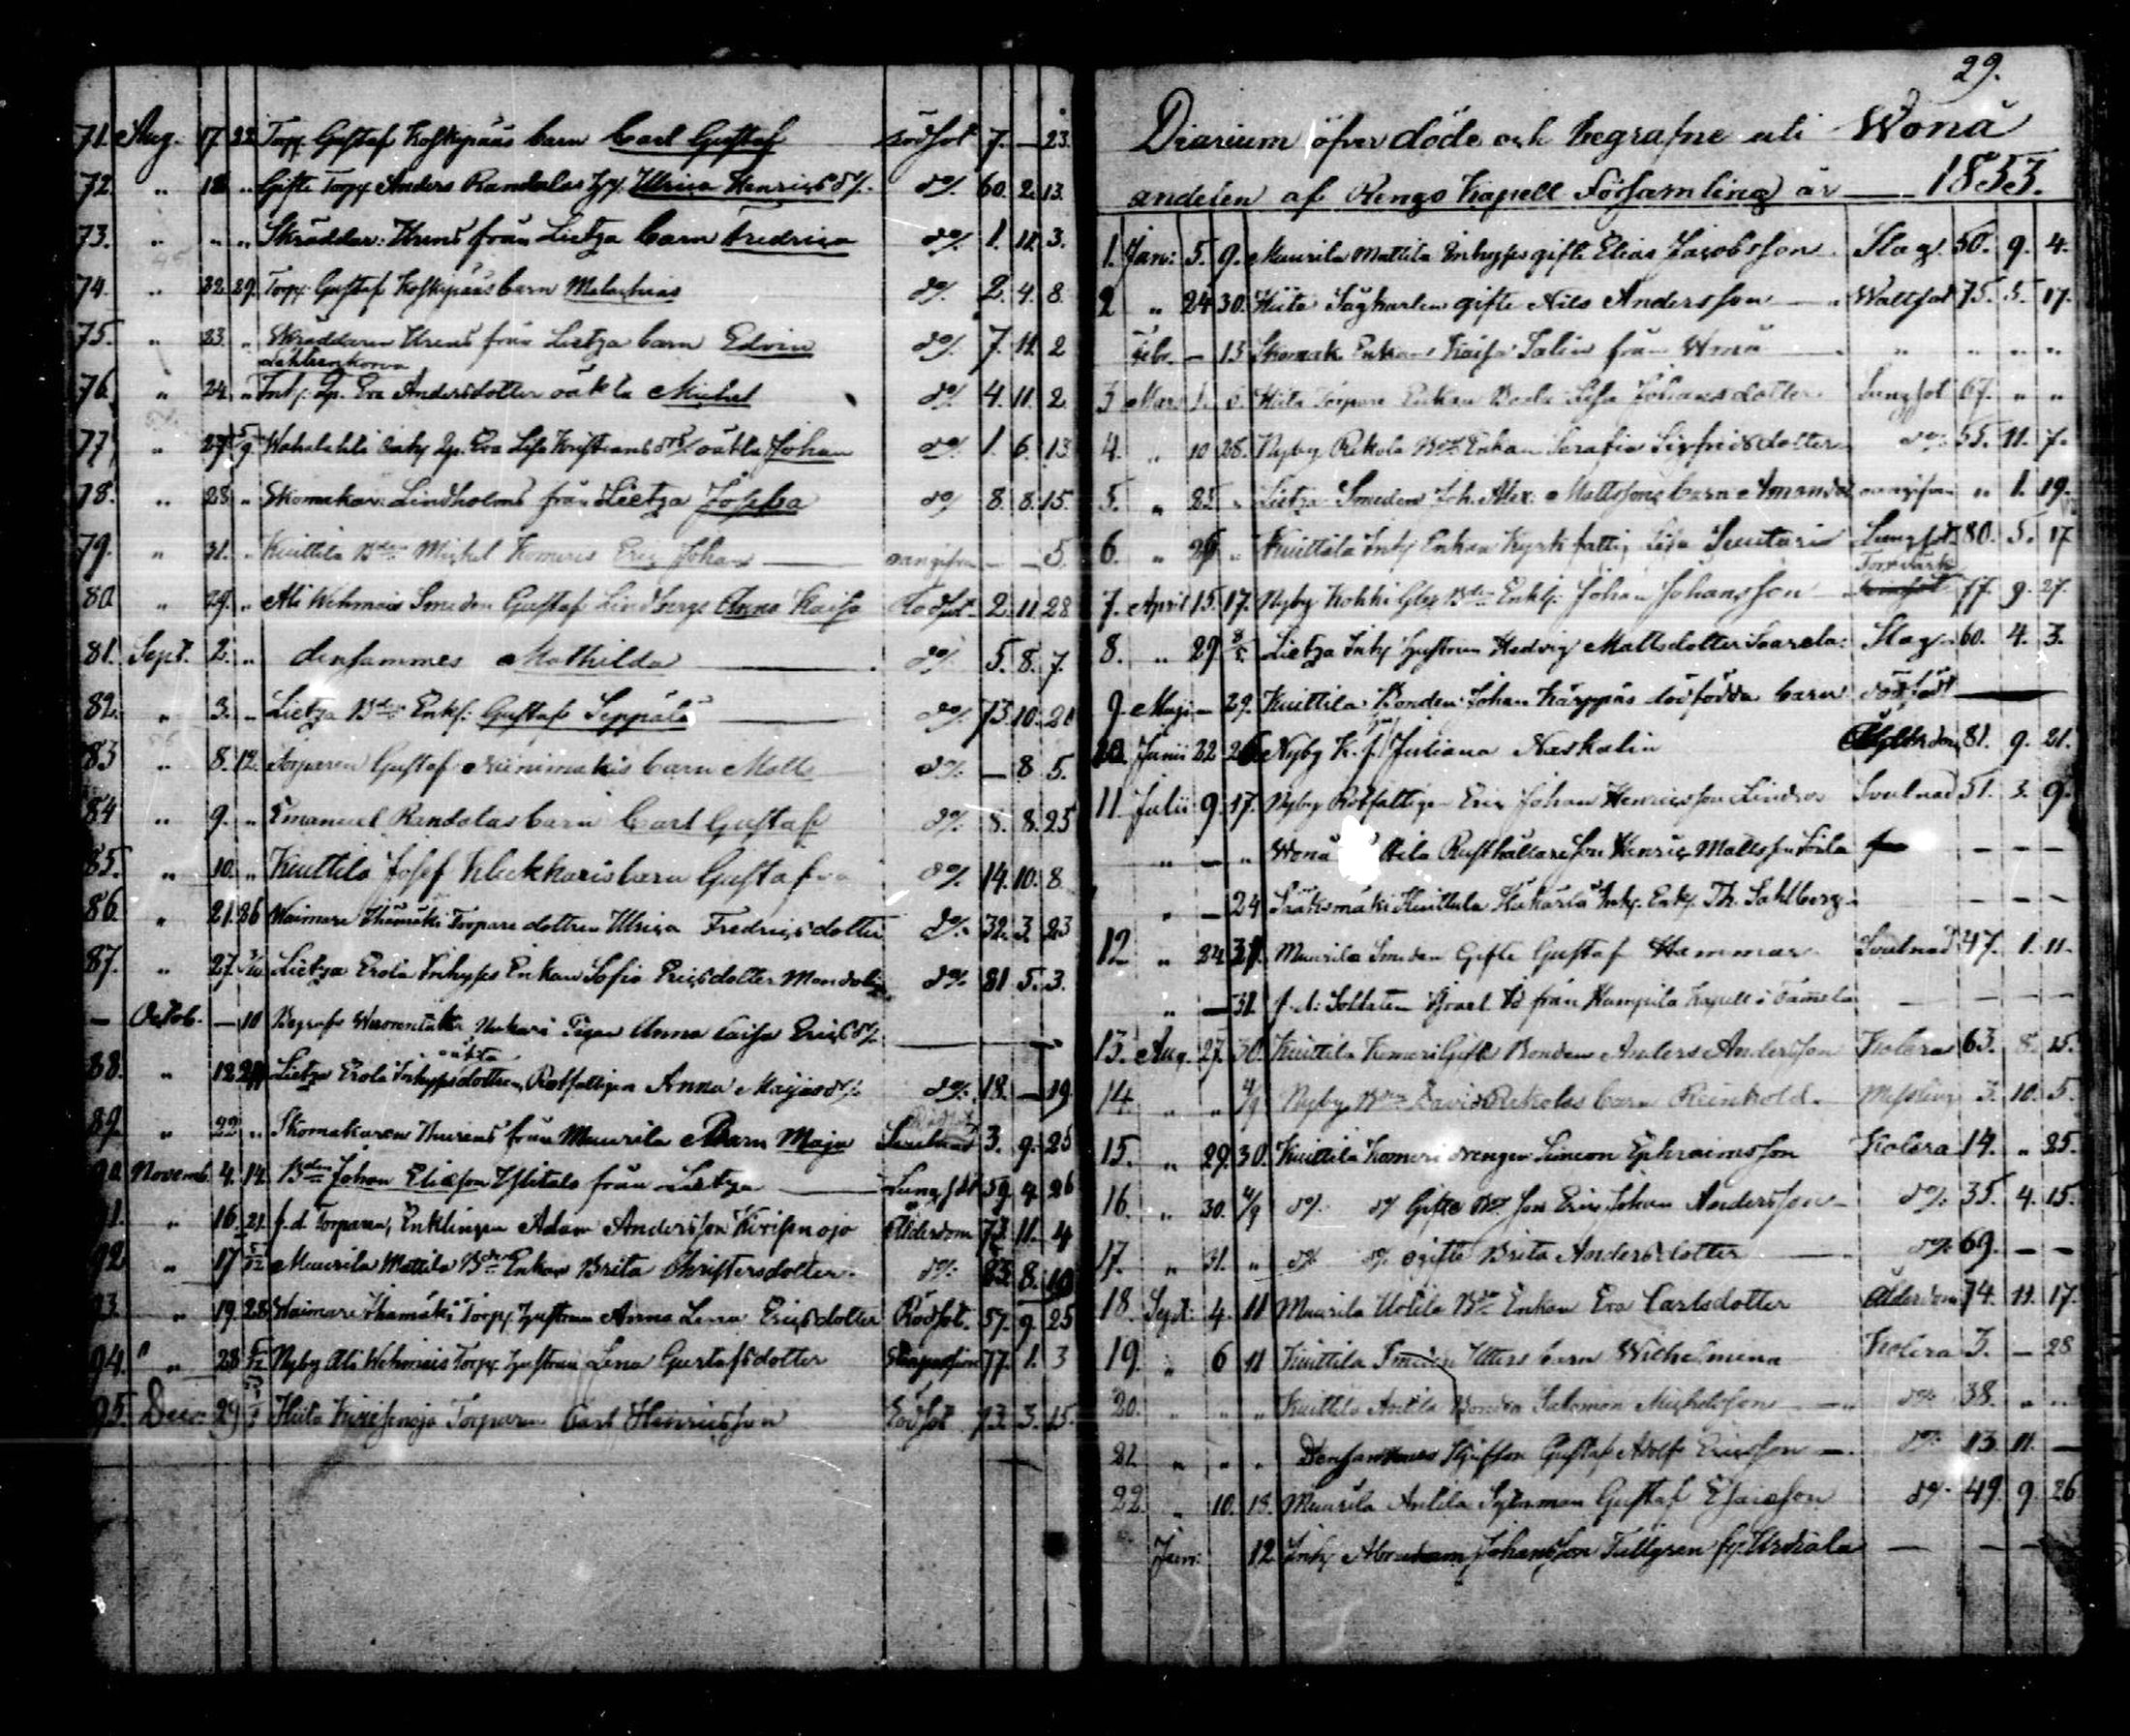 71. Aug. 17 22. Torp. Gustaf Koskipääs barn Carl Gustaf Rödsot 7. — 23.
72. „ 18 „ Gifte Torp. Anders Randalas Ulrica Henricsdr do 60. 2. 13.
73. „ „ „ Skräddar: Urens från Lietza barn Fredrica do 1. 11. 3.
74. „ 22. 29. Torp. Gustaf Koskipääs barn Malachias do 2. 4. 8.
75. „ 23. „ Skräddaren Urens från Lietza barn Edvin do 7. 11. 2
76. „ 24. „ Eva Andersdotter oäkta Michel do 4. 11. 2
77. „ 27 5/9 Eva Lisa oäkta Johan do 1. 6. 13
78. „ 28 „ Skomakar: Lindholms från Lietza Josepha do 8. 8. 15.
79. „ 31. „ Kuittila Bdn Michel Komeris Eric Johan oangifven — — 5.
80. „ 29. „ Ali Wehmais Smeden Gustaf Lindbergs Anna Kaisa Rodsot 2. 11. 28
81. Sept. 2. „ densammes Mathilda do 5. 8. 7.
82. „ 3. „ Lietza Bdn Enkl: Gustaf Seppälä do 73. 10. 21
83 „ 8. 12. Torparen Gustaf Niinimäkis barn Matts do — 8 5.
84 „ 9. „ Emanuel Randalas barn Carl Gustaf do 8. 8. 25
85. „ 10. „ Kuittila Josef barn Gustafva do 14. 10. 8
86. „ 21. 26 Waimare Ihamäki Torpare dottren Ulrica Fredricsdotter do 32. 3. 23
87. „ 27. Lietza Erola Inhyses Enkan Sofia Ericsdotter do 81. 5. 3.
— Octob. — 10 Begrafs Pigan Anna Caisa Ericsdr — —
88. „ 12 Lietza Erola Inhyses dottren oäkta Rotfattigen Anna Majasdr do 18. — 19.
89. „ 22 „ Skomakaren från Muurila Barn Maja 3. 9. 25
90. Novemb. 4. 14. Bdn Johan Eliasson Ylitalo från Lietza Lungsot 59 9. 26
91. „ 16. 21. f.d. Torparen, Enklingen Adam Andersson Kivisenoja Ålderdom 73. 11. 4
92. „ 17 5/12 Muurila Mattila Bdn Enkan Brita Christersdotter do 83. 8. 10
93. „ 19. 28 Waimare Ihamäki Torp. hustrun Anna Lena Ericsdotter Rödsot. 57. 9. 25
94. „ 28 5/12 Nyby Ali Wehmais Torp. hustrun Lena Gustafsdotter 77. 1. 3
95. Dec: 29 Hiita Kivisenoja Torparen Carl Henricsson Rödsot 73. 3. 15.
29.
Diarium öfver döde och begrafne uti Wonå
andelen af Rengo Kapell Församling år — 1853.
1. Jan: 5. 9. Muurila Mattila Inhyses gifte Elias Jacobsson Slag. 50. 9. 4.
2 „ 24 30. Hiita Sågkarlen gifte Nils Andersson — Wattsot 75. 5. 17.
Febr. — 13 Skomak. Enkan Kaisa Salin från Wonå — „ „ „ „
3 Mar. 1. 6. Hiita Torpare Enkan Lisa Johansdotter Lungsot 67. „ „
4. „ 10 28. Nyby Rekola Bdn Enkan Serafia Sigfridsdotter do 55. 11. 7.
5. „ 25 „ Lietza Smeden Joh. Alex. Mattssons barn Amanda oangifven „ 1. 19.
6. „ „ Kuittila Inhy Enkan Kyrkfattig Lisa Suutari Lungsot 80. 5. 17
7. April 15. 17. Nyby Kokki Bdn Enkl. Johan Johansson 77. 9. 27.
8. „ 29 8/5. Lietza Inhy hustrun Hedvig Mattsdotter Saarela: Slag. 60. 4. 3.
9. Maji — 29. Kuittila Bonden Johan Kärppäs dödfödda barn dödfödt —
10. Junii 22 26 Nyby K. f. Juliana Naskalin Ålderdom 81. 9. 21.
11. Julii 9. 17. Nyby Rotfattigen Eric Johan Henricsson Lindros Soulnad 51. 3. 9.
„ — „ Wonå Rusthållareson Henric Mattsson — — —
„ — 24 Sääksmäki Huittula Inhy. Enk. Th. Sahlberg — — —
12 „ 24 31. Muurila Smeden Gifte Gustaf Hammar Soulnad 47. 1. 11.
„ — 31. f.d. Soldaten från Humpila Kapell i Tammela — — — —
13. Aug. 27. 30. Kuittila Komeri Gifte Bonden Anders Andersson Kolera 63. 8. 15.
14. „ „ 4/9 Nyby Bdn David Rekolas barn Reinhold Messling 3. 10. 5.
15. „ 29. 30. Kuittila Komeri drengen Simeon Ephraimsson Kolera 14. „ 25.
16. „ 30. 4/9 do do Gifte Bd. son Eric Johan Andersson do 35. 4. 15.
17. „ 31. „ do do ogifte Brita Andersdotter do 69. — —
18. Sept: 4. 11 Muurila Uotila Bdn Enkan Eva Carlsdotter Ålderdom 74. 11. 17.
19. „ 6 11 Kuittila Smeden barn Wilhelmina Kolera 3. — 28
20. „ „ „ Kuittila Anttila Bonden Salomon Michelsson — do 38. „ „
21. „ „ „ Densammes Styfson Gustaf Adolf Ericsson — do 13. 11. —
22. „ 10. 18. Muurila Anttila Sytnman Gustaf Esaiasson do 49. 9. 26
Jan: 12 Inhy Abraham Johansson Tillgren fr. Urdiala — — —